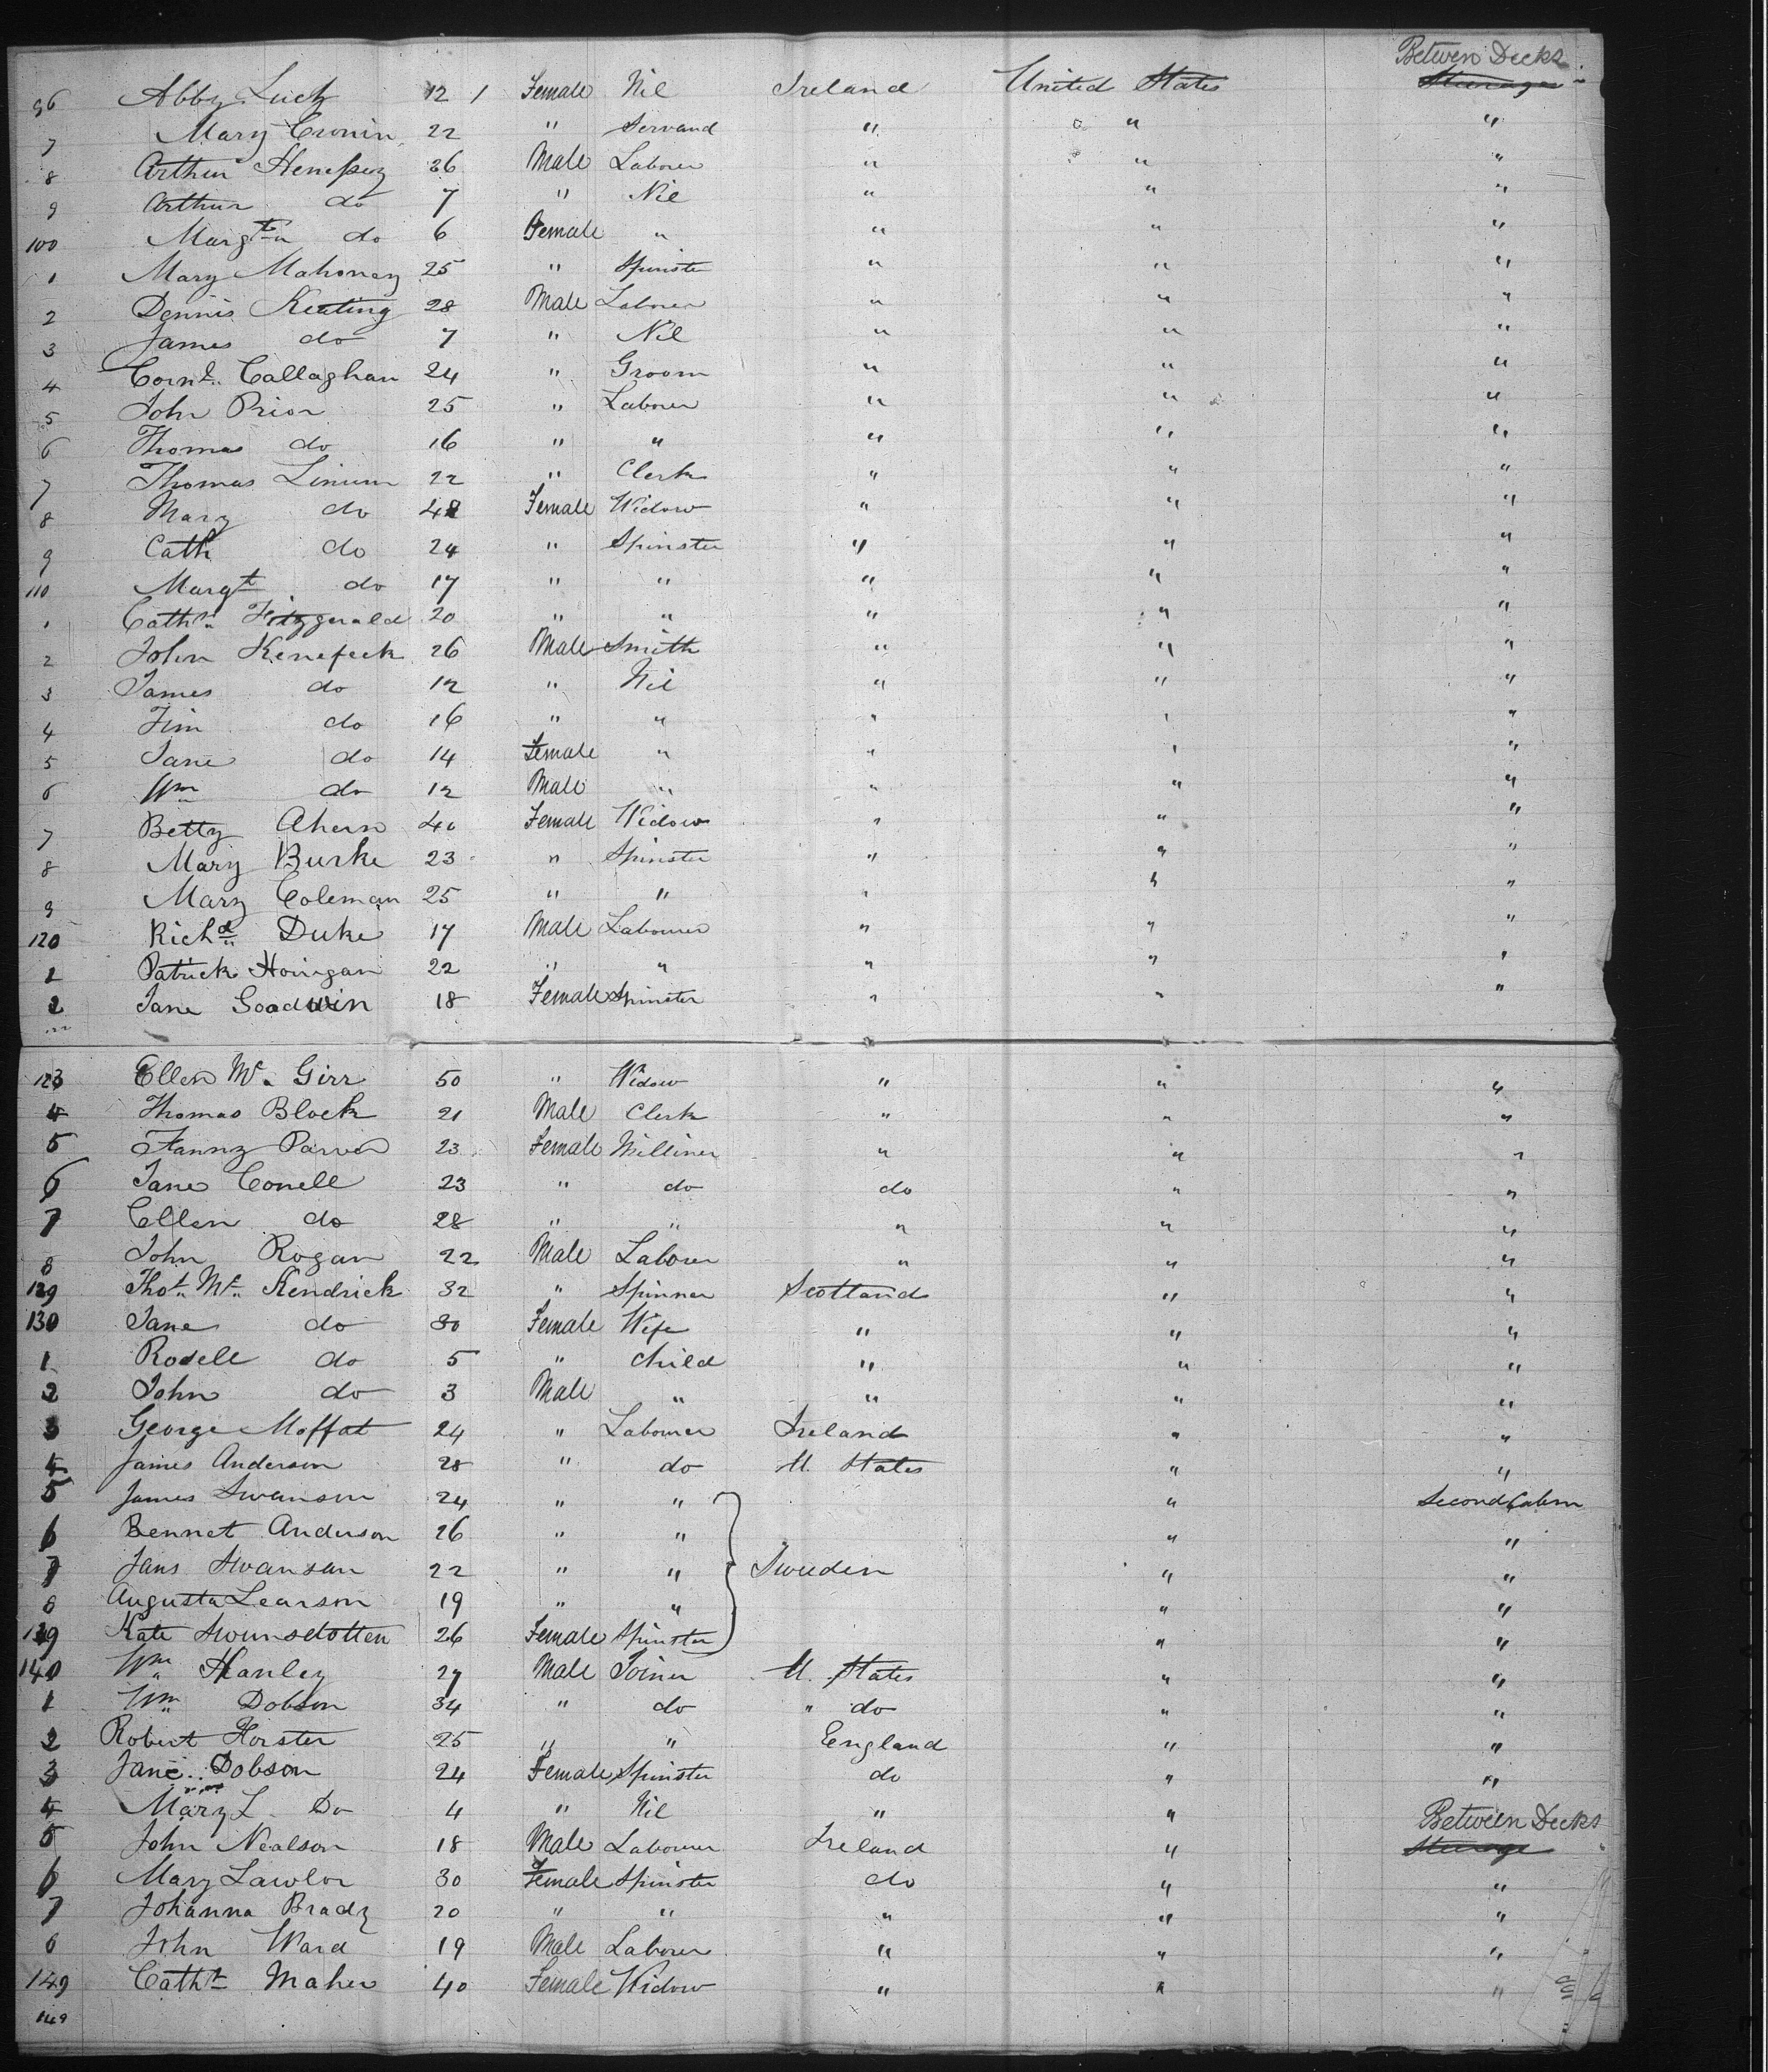 Betwen Decks
96 Abby Luck 12 1 Female Nil Ireland United States Steerage
7 Mary Cronin 22 " Servand " " "
8 Arthur Henessey 26 Male Laborer " " "
9 Arthur do 7 " Nil " " "
100 Margt do 6 Female " " " "
1 Mary Mahoney 25 " Spinster " " "
2 Dennis Keating 28 Male Laborer " " "
3 James do 7 " Nil " " "
4 Corns. Callaghan 24 " Groom " " "
5 John Prior 25 " Laborer " " "
6 Thomas do 16 " " " " "
7 Thomas Linium 22 " Clerk " " "
8 Mary do 48 Female Widow " " "
9 Cath do 24 " Spinster " " "
110 Margt do 17 " " " " "
1 Cathn Fitzgerald 20 " " " " "
2 John Kenefeck 26 Male Smith " " "
3 James do 12 " Nil " " "
4 Tim do 16 " " " " "
5 Jane do 14 Female " " " "
6 Wm do 12 Male " " " "
7 Betty Ahern 40 Female Widow " " "
8 Mary Burke 23 " Spinster " " "
9 Mary Coleman 25 " " " " "
120 Richd Duke 17 Male Labourer " " "
1 Patrick Honigan 22 " " " " "
2 Jane Goodwin 18 Female Spinster " " "
123 Ellen Mc. Girr 50 " Widow " " "
4 Thomas Block 21 Male Clerk " " "
5 Fanny 23 Female Milliner " " "
6 Jane Conell 23 " do do " "
7 Ellen do 28 " " " " "
8 John Rogan 22 Male Laborer " " "
129 Thos Mc. Kendrick 32 " Spinner Scotland " "
130 Jane do 30 Female Wife " " "
1 Rosell do 5 " Child " " "
2 John do 3 Male " " " "
3 George Moffat 24 " Labourer Ireland " "
4 James Anderson 28 " do U. States " "
5 James Swanson 24 " " " Second Cabin
6 Bennet Anderson 26 " " " "
7 Jans Swanson 22 " " Sweden " "
8 Augusta Learson 19 " " " "
139 Kate Swunsdotten 26 Female Spinster " "
140 Wm Hanley 27 Male Joiner U. States " "
1 Wm Dobson 34 " do " do " "
2 Robert Horster 25 " " England " "
3 Jane Dobson 24 Female Spinster do " "
4 Mary L. Do 4 " Nil " " Between Decks
5 John Nealson 18 Male Labourer Ireland " Steerage
6 Mary Lawlor 30 Female Spinster do " "
7 Johanna Brady 20 " " " " "
8 John Ward 19 Male Laborer " " "
149 Cathn Maher 40 Female Widow " " "
149